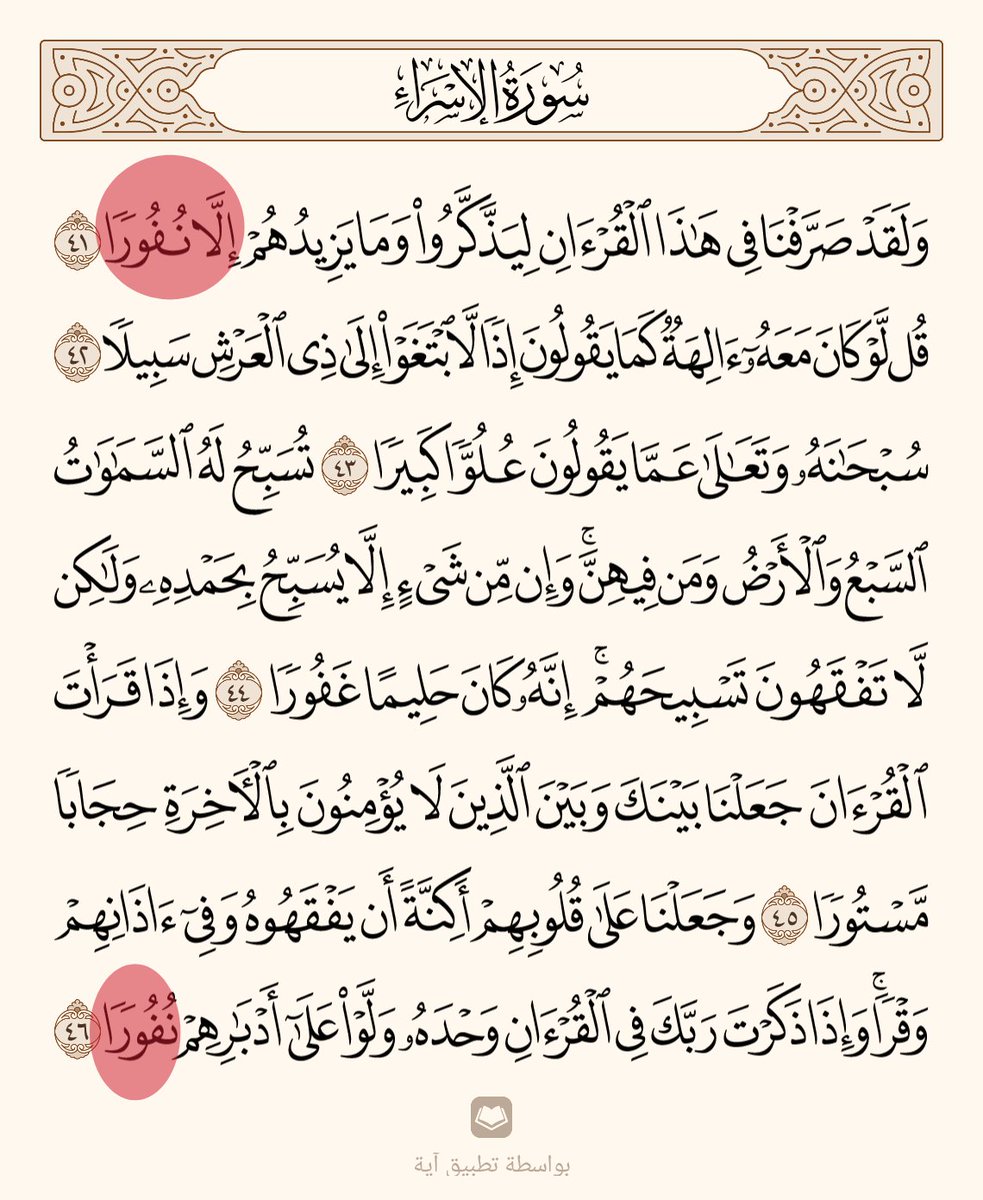 سُورَةُ الإِسْرَاءِ
وَلَقَدۡ صَرَّفۡنَا فِي هَٰذَا ٱلۡقُرۡءَانِ لِيَذَّكَّرُواْ وَمَا يَزِيدُهُمۡ إِلَّا نُفُورٗا ٤١
قُل لَّوۡ كَانَ مَعَهُۥٓ ءَالِهَةٞ كَمَا يَقُولُونَ إِذٗا لَّٱبۡتَغَوۡاْ إِلَىٰ ذِي ٱلۡعَرۡشِ سَبِيلٗا ٤٢
سُبۡحَٰنَهُۥ وَتَعَٰلَىٰ عَمَّا يَقُولُونَ عُلُوّٗا كَبِيرٗا ٤٣ تُسَبِّحُ لَهُ ٱلسَّمَٰوَٰتُ
ٱلسَّبۡعُ وَٱلۡأَرۡضُ وَمَن فِيهِنَّۚ وَإِن مِّن شَيۡءٍ إِلَّا يُسَبِّحُ بِحَمۡدِهِۦ وَلَٰكِن
لَّا تَفۡقَهُونَ تَسۡبِيحَهُمۡۚ إِنَّهُۥ كَانَ حَلِيمًا غَفُورٗا ٤٤ وَإِذَا قَرَأۡتَ
ٱلۡقُرۡءَانَ جَعَلۡنَا بَيۡنَكَ وَبَيۡنَ ٱلَّذِينَ لَا يُؤۡمِنُونَ بِٱلۡأٓخِرَةِ حِجَابٗا
مَّسۡتُورٗا ٤٥ وَجَعَلۡنَا عَلَىٰ قُلُوبِهِمۡ أَكِنَّةً أَن يَفۡقَهُوهُ وَفِيٓ ءَاذَانِهِمۡ
وَقۡرٗاۚ وَإِذَا ذَكَرۡتَ رَبَّكَ فِي ٱلۡقُرۡءَانِ وَحۡدَهُۥ وَلَّوۡاْ عَلَىٰٓ أَدۡبَٰرِهِمۡ نُفُورٗا ٤٦
بواسطة تطبيق آية